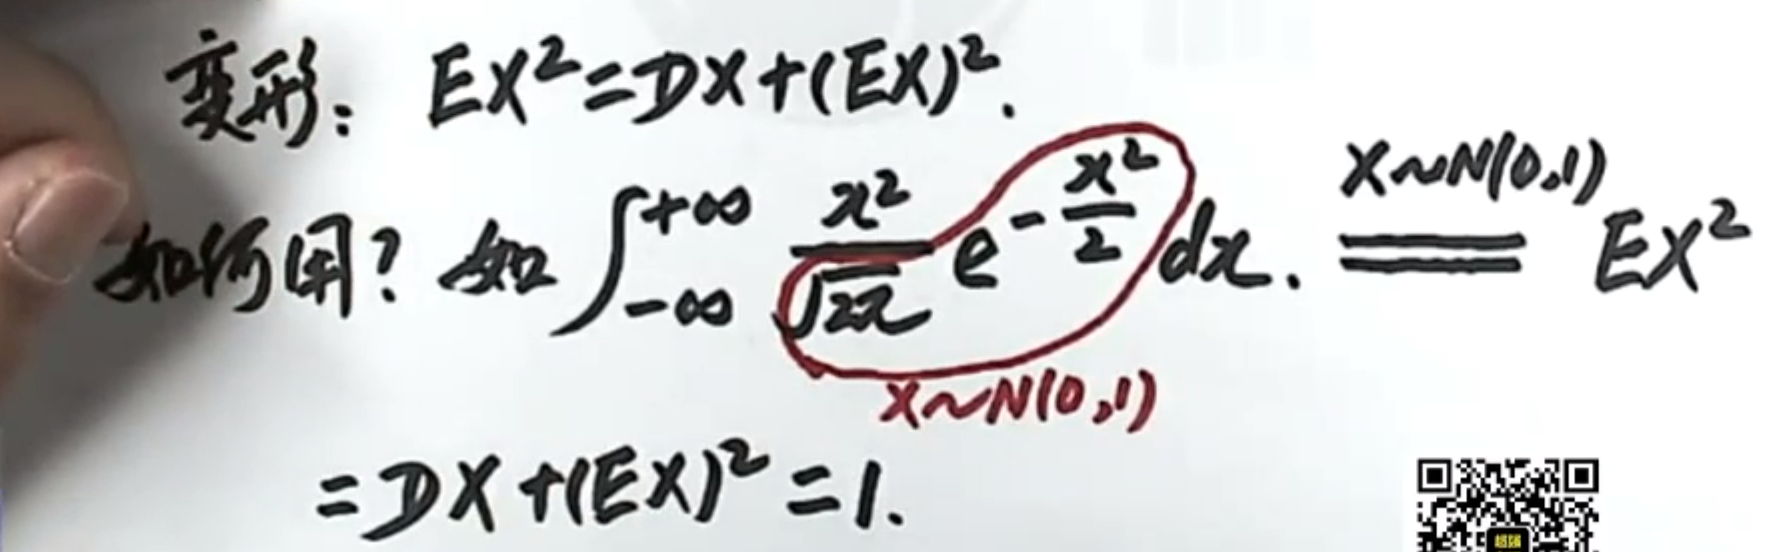 变形: EX²=DX+(EX)².
如何用? 如 ∫_{-∞}^{+∞} \frac{x²}{\sqrt{2π}} e^{-\frac{x²}{2}} dx. \overset{X~N(0,1)}{=} EX²
X~N(0,1)
=DX+(EX)²=1.